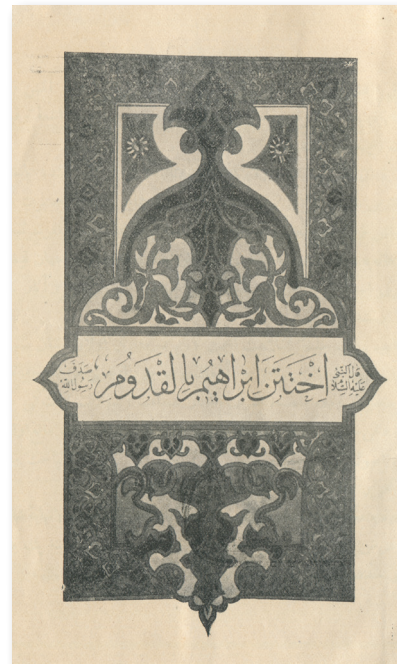 قال النبي عليه السلام
اِخْتَتَنَ ابْرَاهِيمُ بِالْقَدُومِ
صدق رسول الله